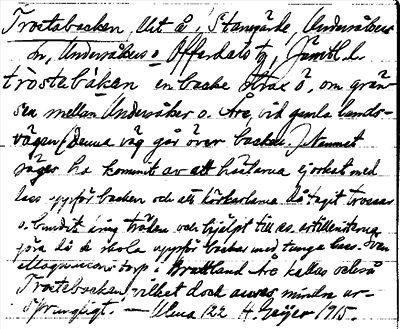 Trostabacken, Ut å, Stamgärde, Undersåkers
sn, Undersåkers o Offerdals tg, Jämtl. l.
tròstabákεn en backe strax ö. om grän-
sen mellan Undersåker o. Åre, vid gamla lands-
vägen (denna väg går över backen.) Namnet
säges ha kommit av att hästarna ej orkat med
lass uppför backen och att körkarlarna då tagit trossar
o. bundit kring träden och hjälpt till as. artilleristerna
göra då de skola uppför backar med tunga lass. Även
ett torp i Brattland Åre kallas också
Trostabacken, vilket dock anses mindre ur-
sprungligt. — Ulma 122 H. Geijer 1915.